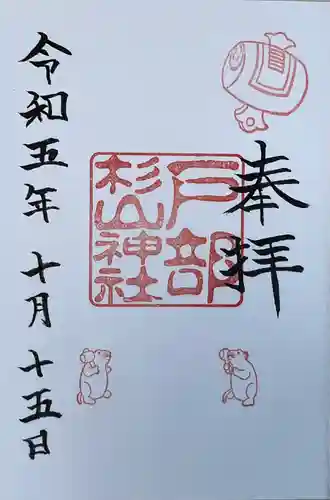 奉拝
戸部
杉山神社
令和五年 十月 十五日